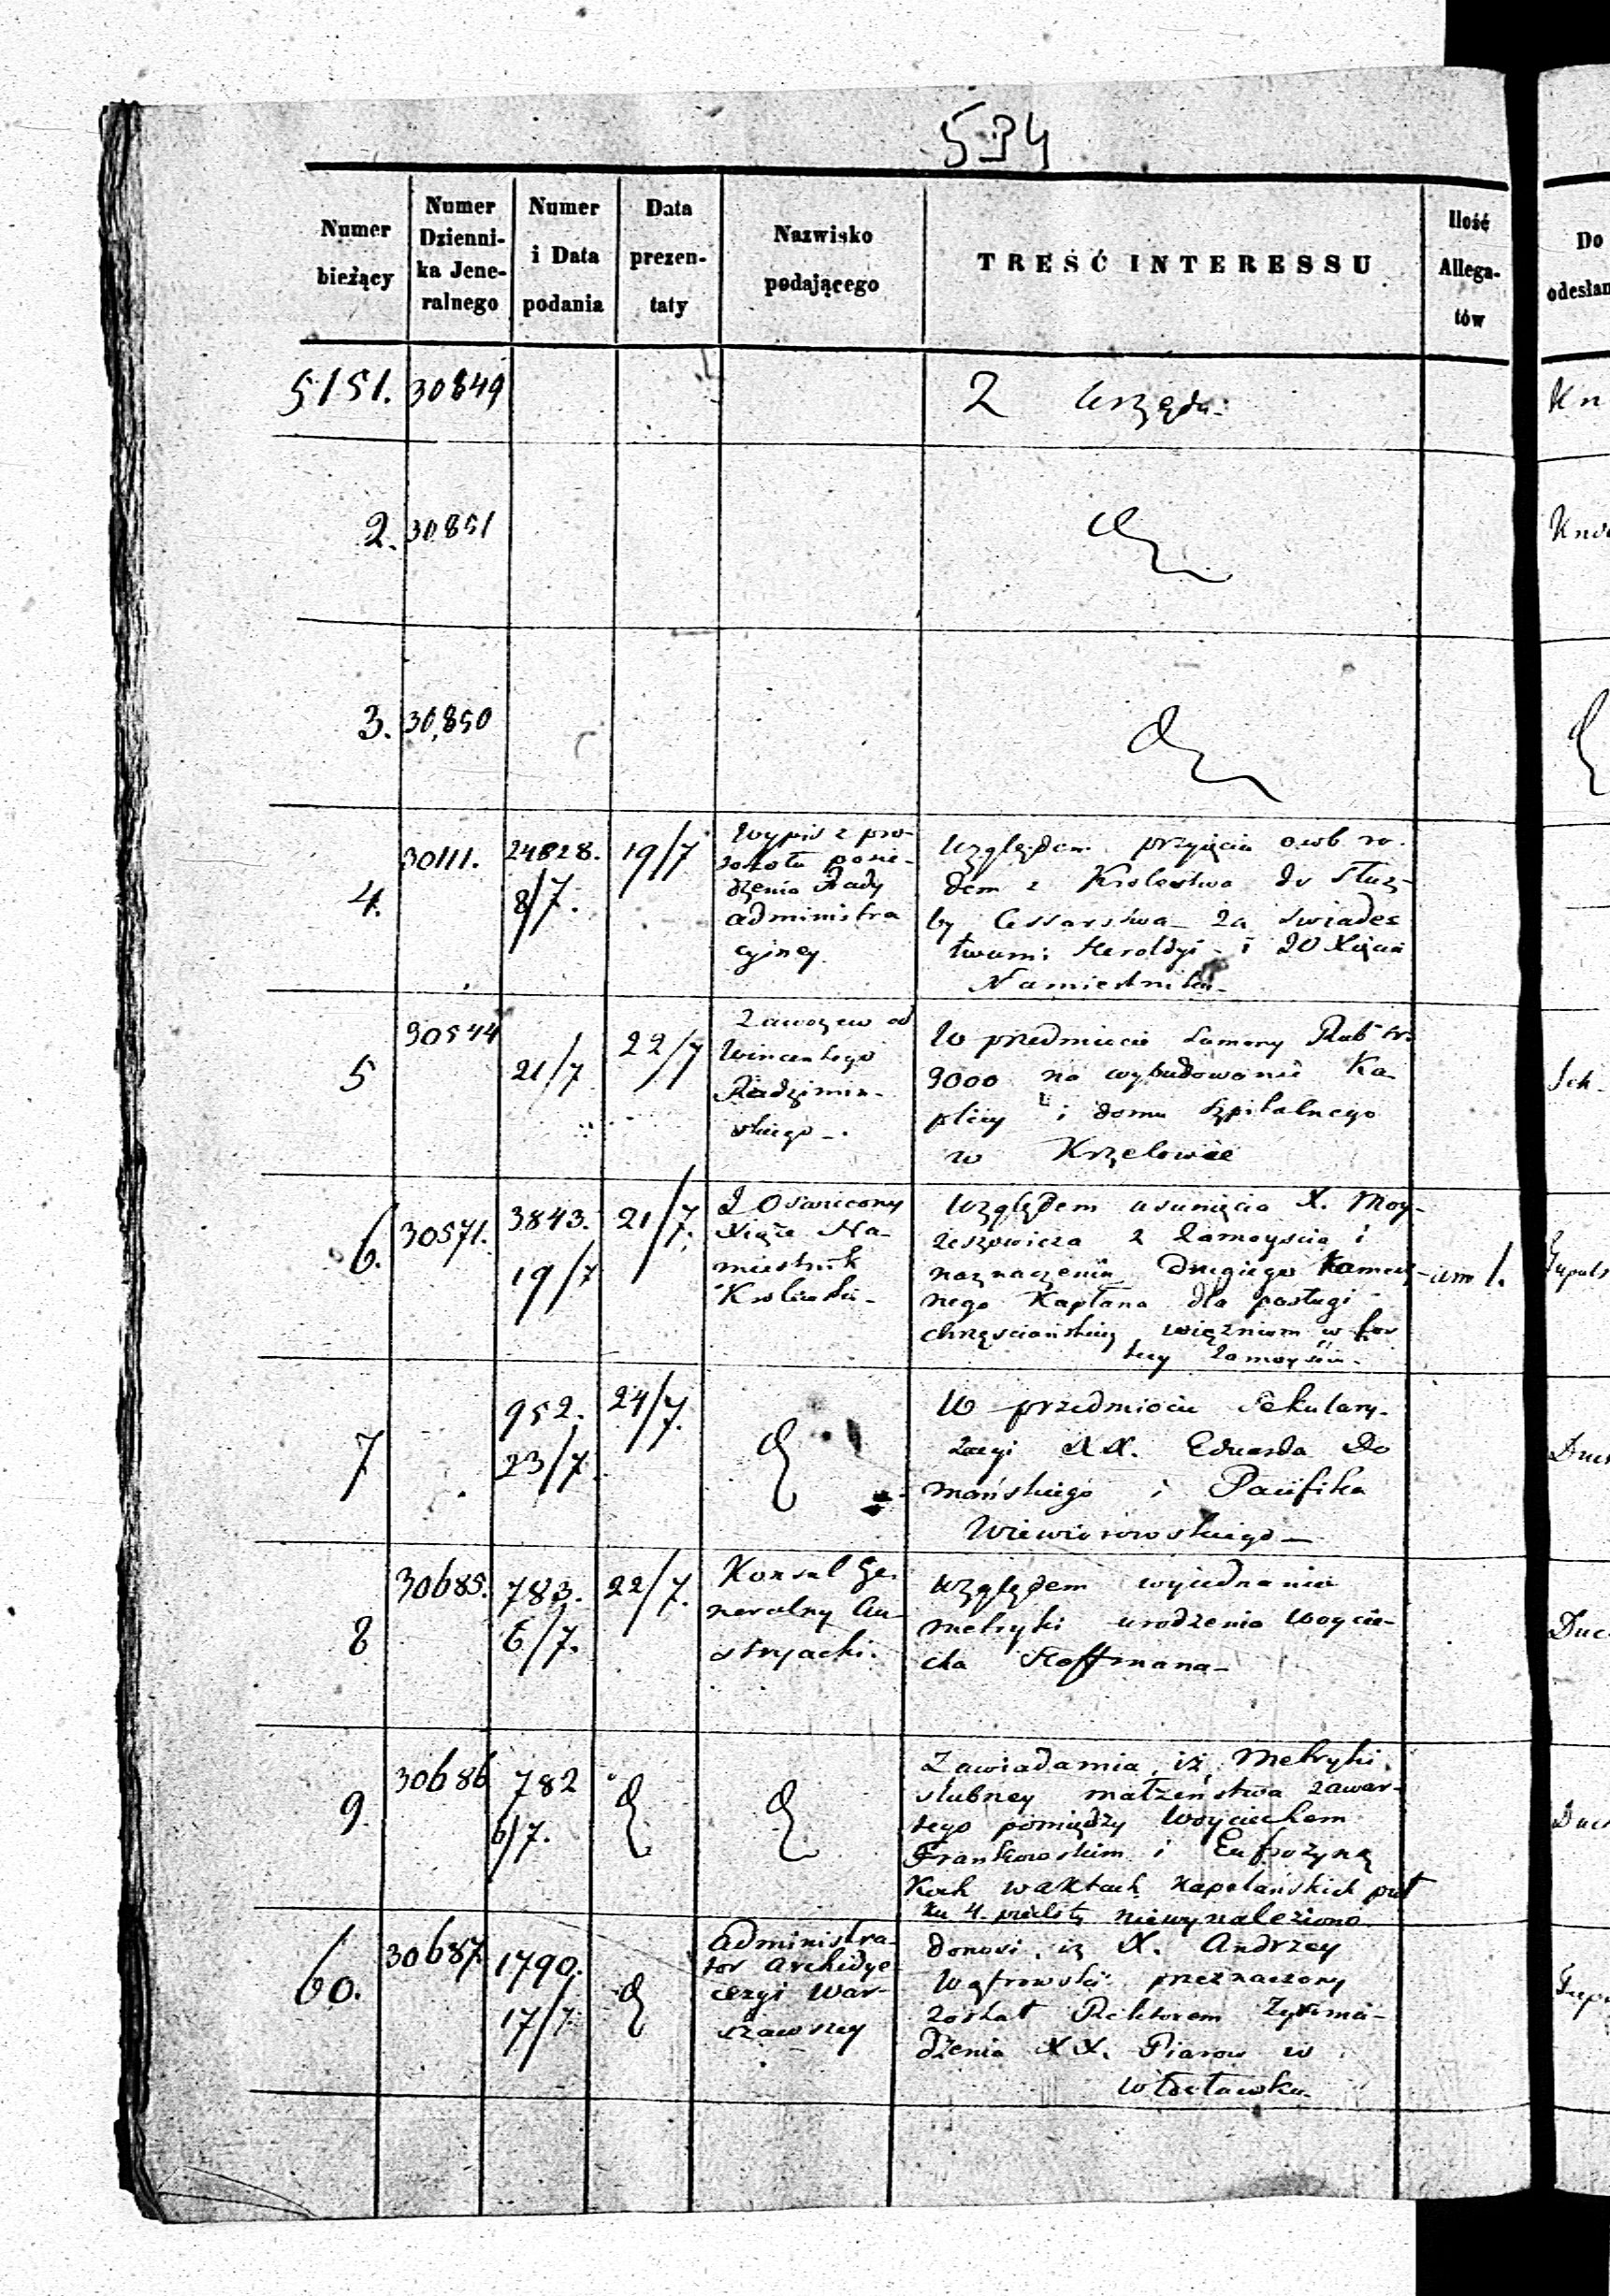 534
Numer bieżący
Numer Dzienni-
ka Jene-
ralnego
Numer
i Data
podania
Data
prezen-
taty
Nazwisko
podającego
TREŚĆ INTERESSU
Ilość
Allega-
tów
Do
odesłan
5151. 30849 Z Urzędu Kn
2. 30851
3. 30,850
4. 30111. 24828. 8/7. 19/7
Wypis z pro-
tokołu posie-
dzenia Rady
administra
cyjney
Względem przyięcia osob ro-
dem z Krolestwa do służ-
by Cessarstwa za swiadec
twami Heroldyi i JO Xięcia
Namiestnika
5 30544 21/7 22/7
Wincentego
Radzimin-
skiego
W przedmiocie summy Rub sr.
9000 na wybudowanie Ka-
plicy i domu szpitalnego
w Krzelowie
6. 30571. 3843. 19/7 21/7.
J Oswiecony
Xiąże Na-
miestnik
Krolewski
Względem usunięcia X. Moy-
zeszowicza z Zamoyscia i
naznaczenia drugiego
nego Kapłana dla posługi
chrzęsciańskiey więzniom w for
tecy Zamoyściu
1.
7 952. 23/7 24/7.
W przedmiocie Sekulary-
zacyi XX. Eduarda Do
mańskiego i Pacifika
Wiewiorowskiego
8 30685. 783. 6/7. 22/7.
Konsul Ge-
neralny Au-
stryacki.
Względem wyiednania
metryki urodzenia Woycie-
cha Hoffmana
9. 30686 782 6/7.
Zawiadamia, iż Metryki
slubney małżeństwa zawar-
tego pomiędzy Woyciechem
Frankowskim i Eufrozyną
Koch w aktach Kapelańskich puł
ku 4 piechoty niewynaleziono
60. 30687. 1790. 17/7.
Administra-
tor Archidye
cezyi War-
szawskiey
donosi, iż X. Andrzey
Wątrowski przeznaczony
został Rektorem Zgroma-
dzenia XX. Piarow w
Włocławku